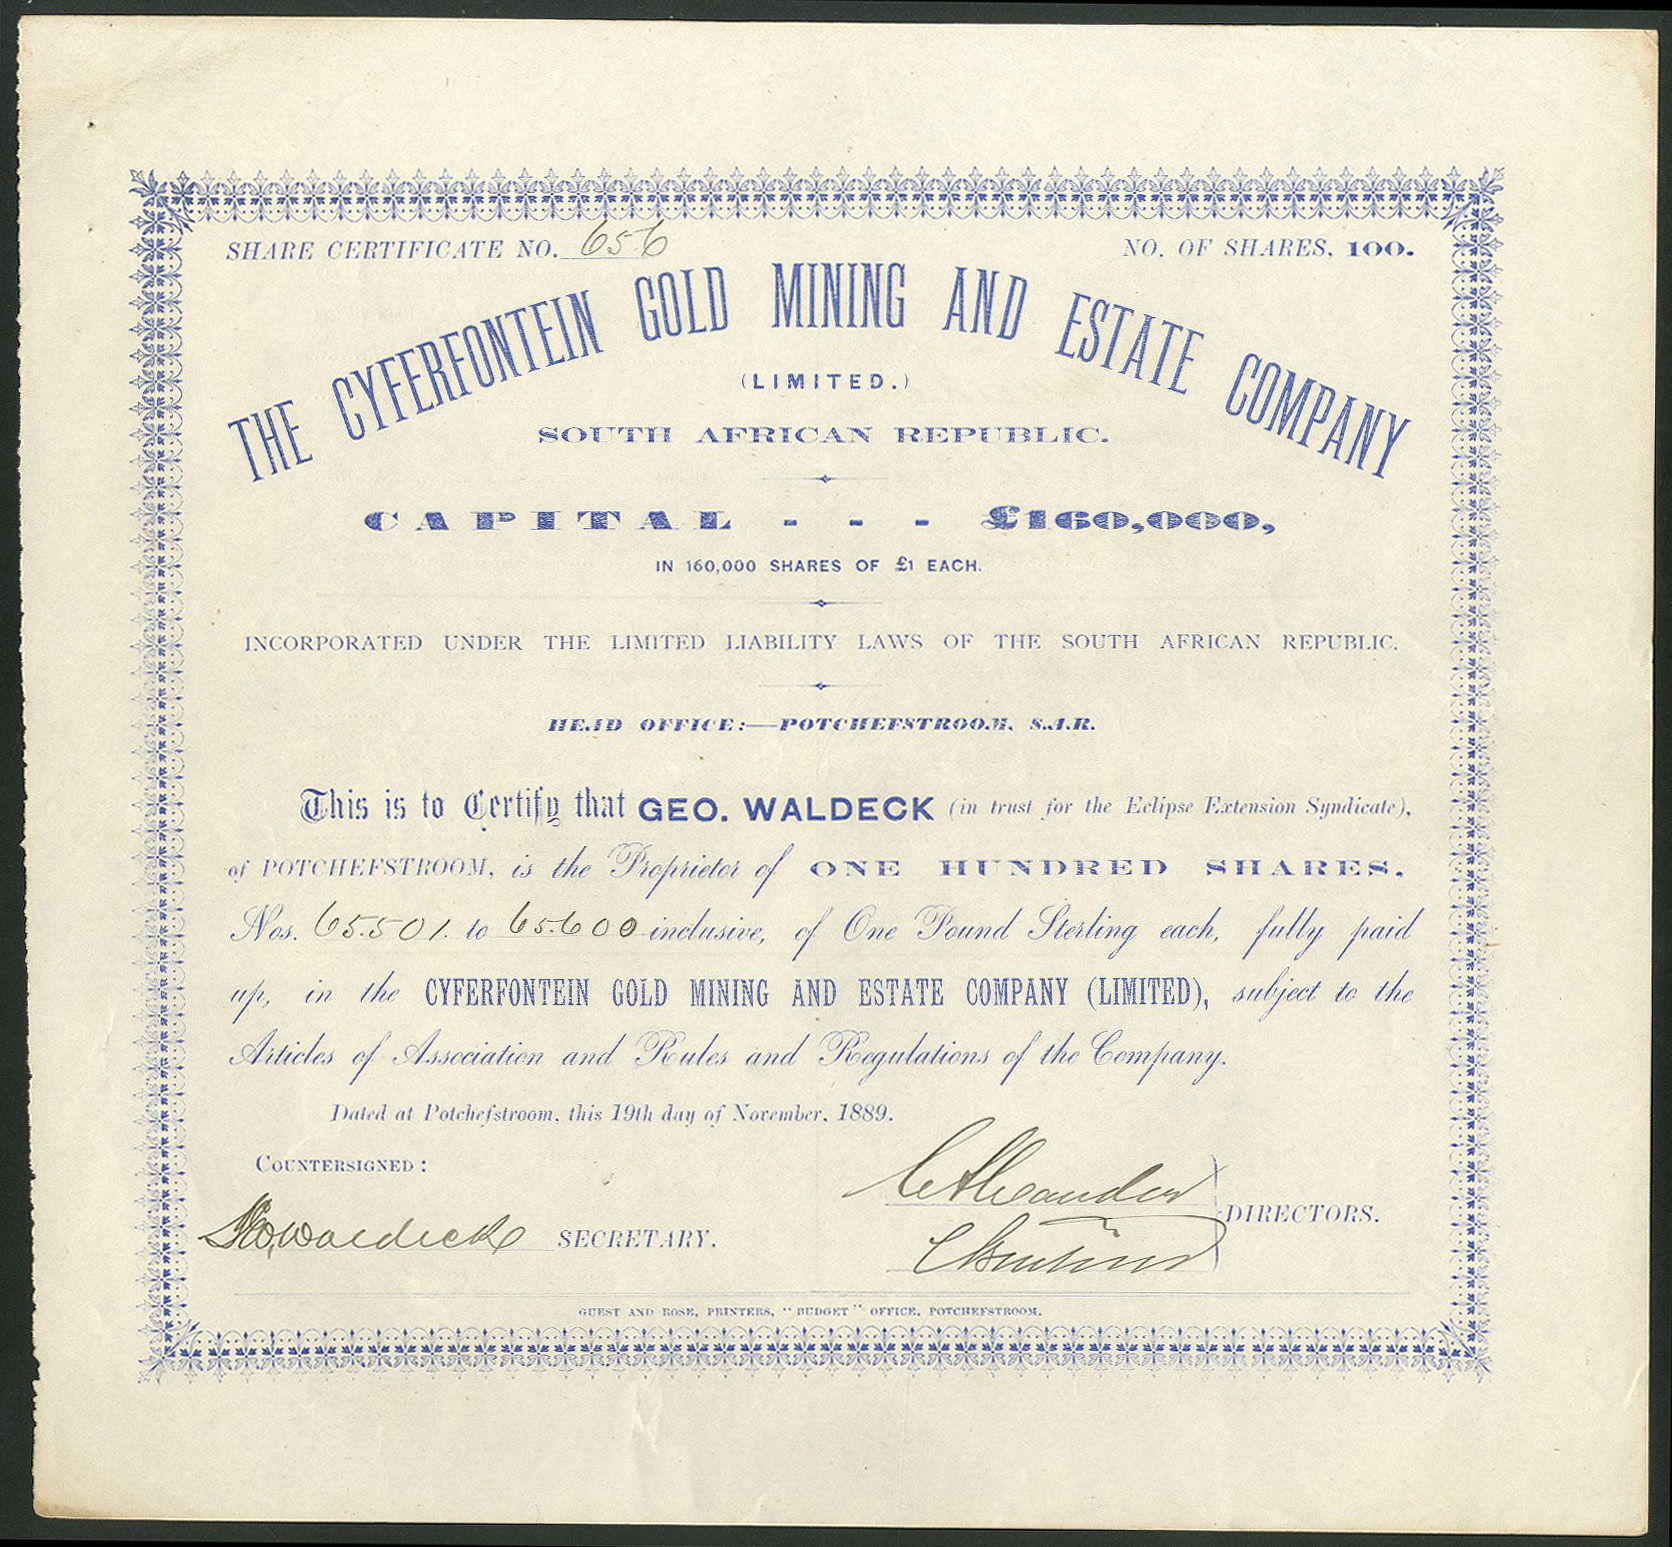 SHARE CERTIFICATE NO. 656 NO. OF SHARES, 100.
THE CYFERFONTEIN GOLD MINING AND ESTATE COMPANY
(LIMITED.)
SOUTH AFRICAN REPUBLIC.
CAPITAL - - - £160,000,
IN 160,000 SHARES OF £1 EACH.
INCORPORATED UNDER THE LIMITED LIABILITY LAWS OF THE SOUTH AFRICAN REPUBLIC.
HEAD OFFICE:—POTCHEFSTROOM, S.A.R.
This is to Certify that GEO. WALDECK (in trust for the Eclipse Extension Syndicate),
of POTCHEFSTROOM, is the Proprietor of ONE HUNDRED SHARES,
Nos. 65501. to 65600 inclusive, of One Pound Sterling each, fully paid
up, in the CYFERFONTEIN GOLD MINING AND ESTATE COMPANY (LIMITED), subject to the
Articles of Association and Rules and Regulations of the Company.
Dated at Potchefstroom, this 19th day of November, 1889.
COUNTERSIGNED:
Geo, Waldeck SECRETARY.
DIRECTORS.
GUEST AND ROSE, PRINTERS, "BUDGET" OFFICE, POTCHEFSTROOM.